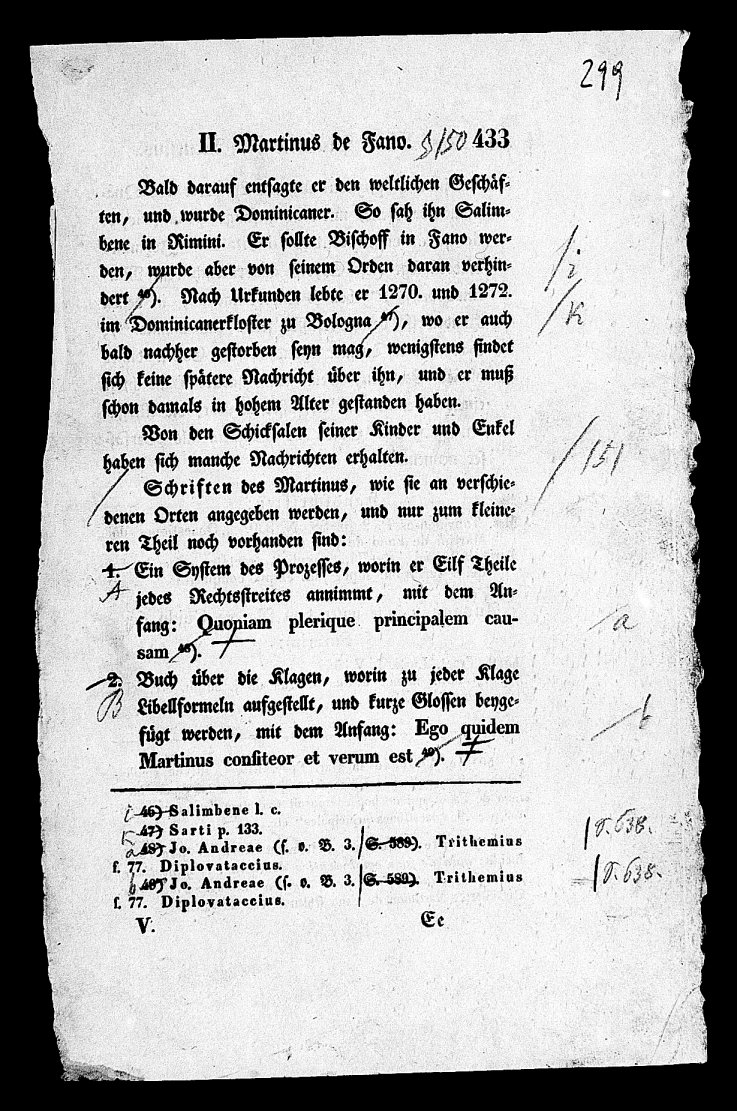 299
II. Martinus de Fano. § 150 433
Bald darauf entsagte er den weltlichen Geschäf-
ten, und wurde Dominicaner. So sah ihn Salim-
bene in Rimini. Er sollte Bischoff in Fano wer-
den, wurde aber von seinem Orden daran verhin-
dert 46). Nach Urkunden lebte er 1270. und 1272. / i
im Dominicanerkloster zu Bologna 47), wo er auch / k
bald nachher gestorben seyn mag, wenigstens findet
sich keine spätere Nachricht über ihn, und er muß
schon damals in hohem Alter gestanden haben.
Von den Schicksalen seiner Kinder und Enkel
haben sich manche Nachrichten erhalten. / 151
Schriften des Martinus, wie sie an verschie-
denen Orten angegeben werden, und nur zum kleine-
ren Theil noch vorhanden sind:
1. Ein System des Prozesses, worin er Eilf Theile
A jedes Rechtsstreites annimmt, mit dem An-
fang: Quoniam plerique principalem cau- / a
sam 48).
2. Buch über die Klagen, worin zu jeder Klage
B Libellformeln aufgestellt, und kurze Glossen beyge-
fügt werden, mit dem Anfang: Ego quidem / b
Martinus confiteor et verum est 49).
i 46) Salimbene l. c.
k 47) Sarti p. 133.
a 48) Jo. Andreae (s. o. B. 3. S. 589). Trithemius | S. 638.
f. 77. Diplovataccius.
b 49) Jo. Andreae (s. o. B. 3. S. 589). Trithemius | S. 638.
f. 77. Diplovataccius.
V. Ee